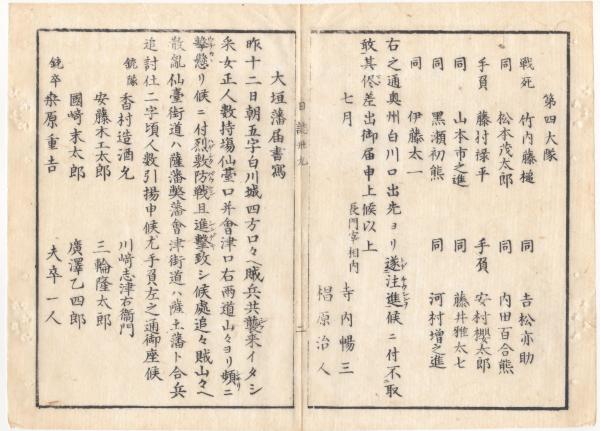 第四大隊
戦死 竹内藤槌 同 吉松亦助
同 松本茂太郎 同 内田百合熊
手負 藤村禄平 手負 安村櫻太郎
同 山本市之進 同 藤井雅太七
同 黒瀬初熊 同 河村增之進
同 伊藤太一
右之通奥州白川口出先ヨリ遂注進候ニ付不取
敢其侭差出御届申上候以上
七月 長門宰相内 寺内暢三
椙原治人
日誌 卅九
二
大垣藩届書寫
昨十二日朝五字白川城四方口々ヘ賊兵共襲来イタシ
采女正人數持場仙臺口并會津口右両道山々ヨリ頻ニ
擊懸リ候ニ付烈敷防戦且進擊致シ候處追々賊山々ヘ
散亂仙臺街道ハ薩藩奬藩會津街道ハ薩土藩ト合兵
追討仕二字頃人數引揚申候尤手負左之通御座候
銃隊 香村造酒允 川嶋志津右衞門
安藤木工太郎 三輪隆太郎
國嶋末太郎 廣澤乙四郎
銃卒 桑原重吉 夫卒一人